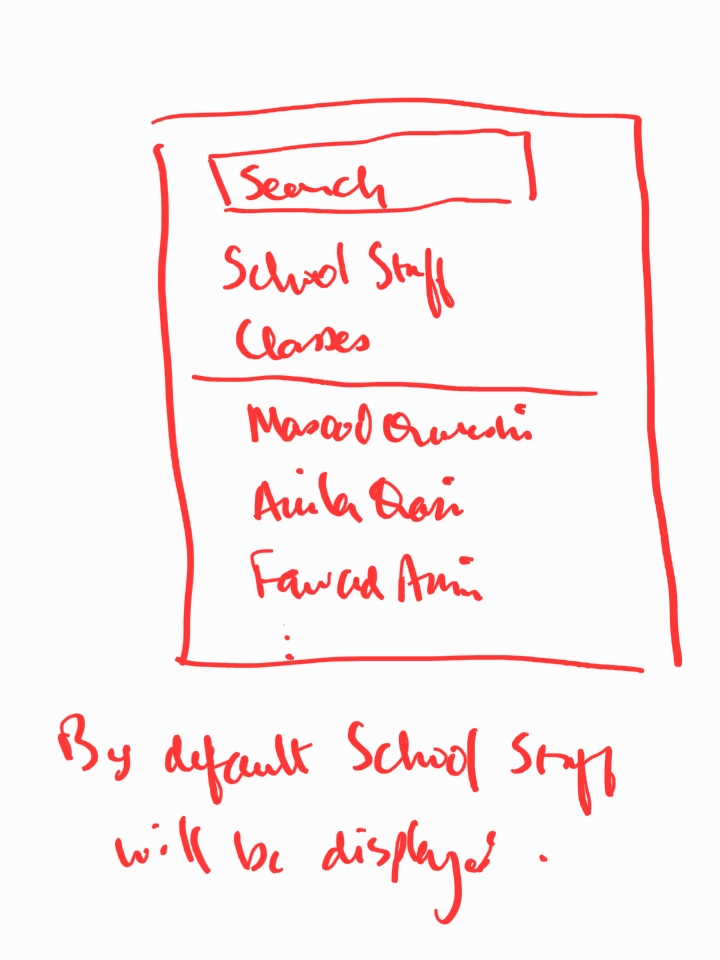 Search
School Staff
Classes
Masood Qureshi
Anila Qazi
Fawad Amin
By default School Staff
will be displayed.